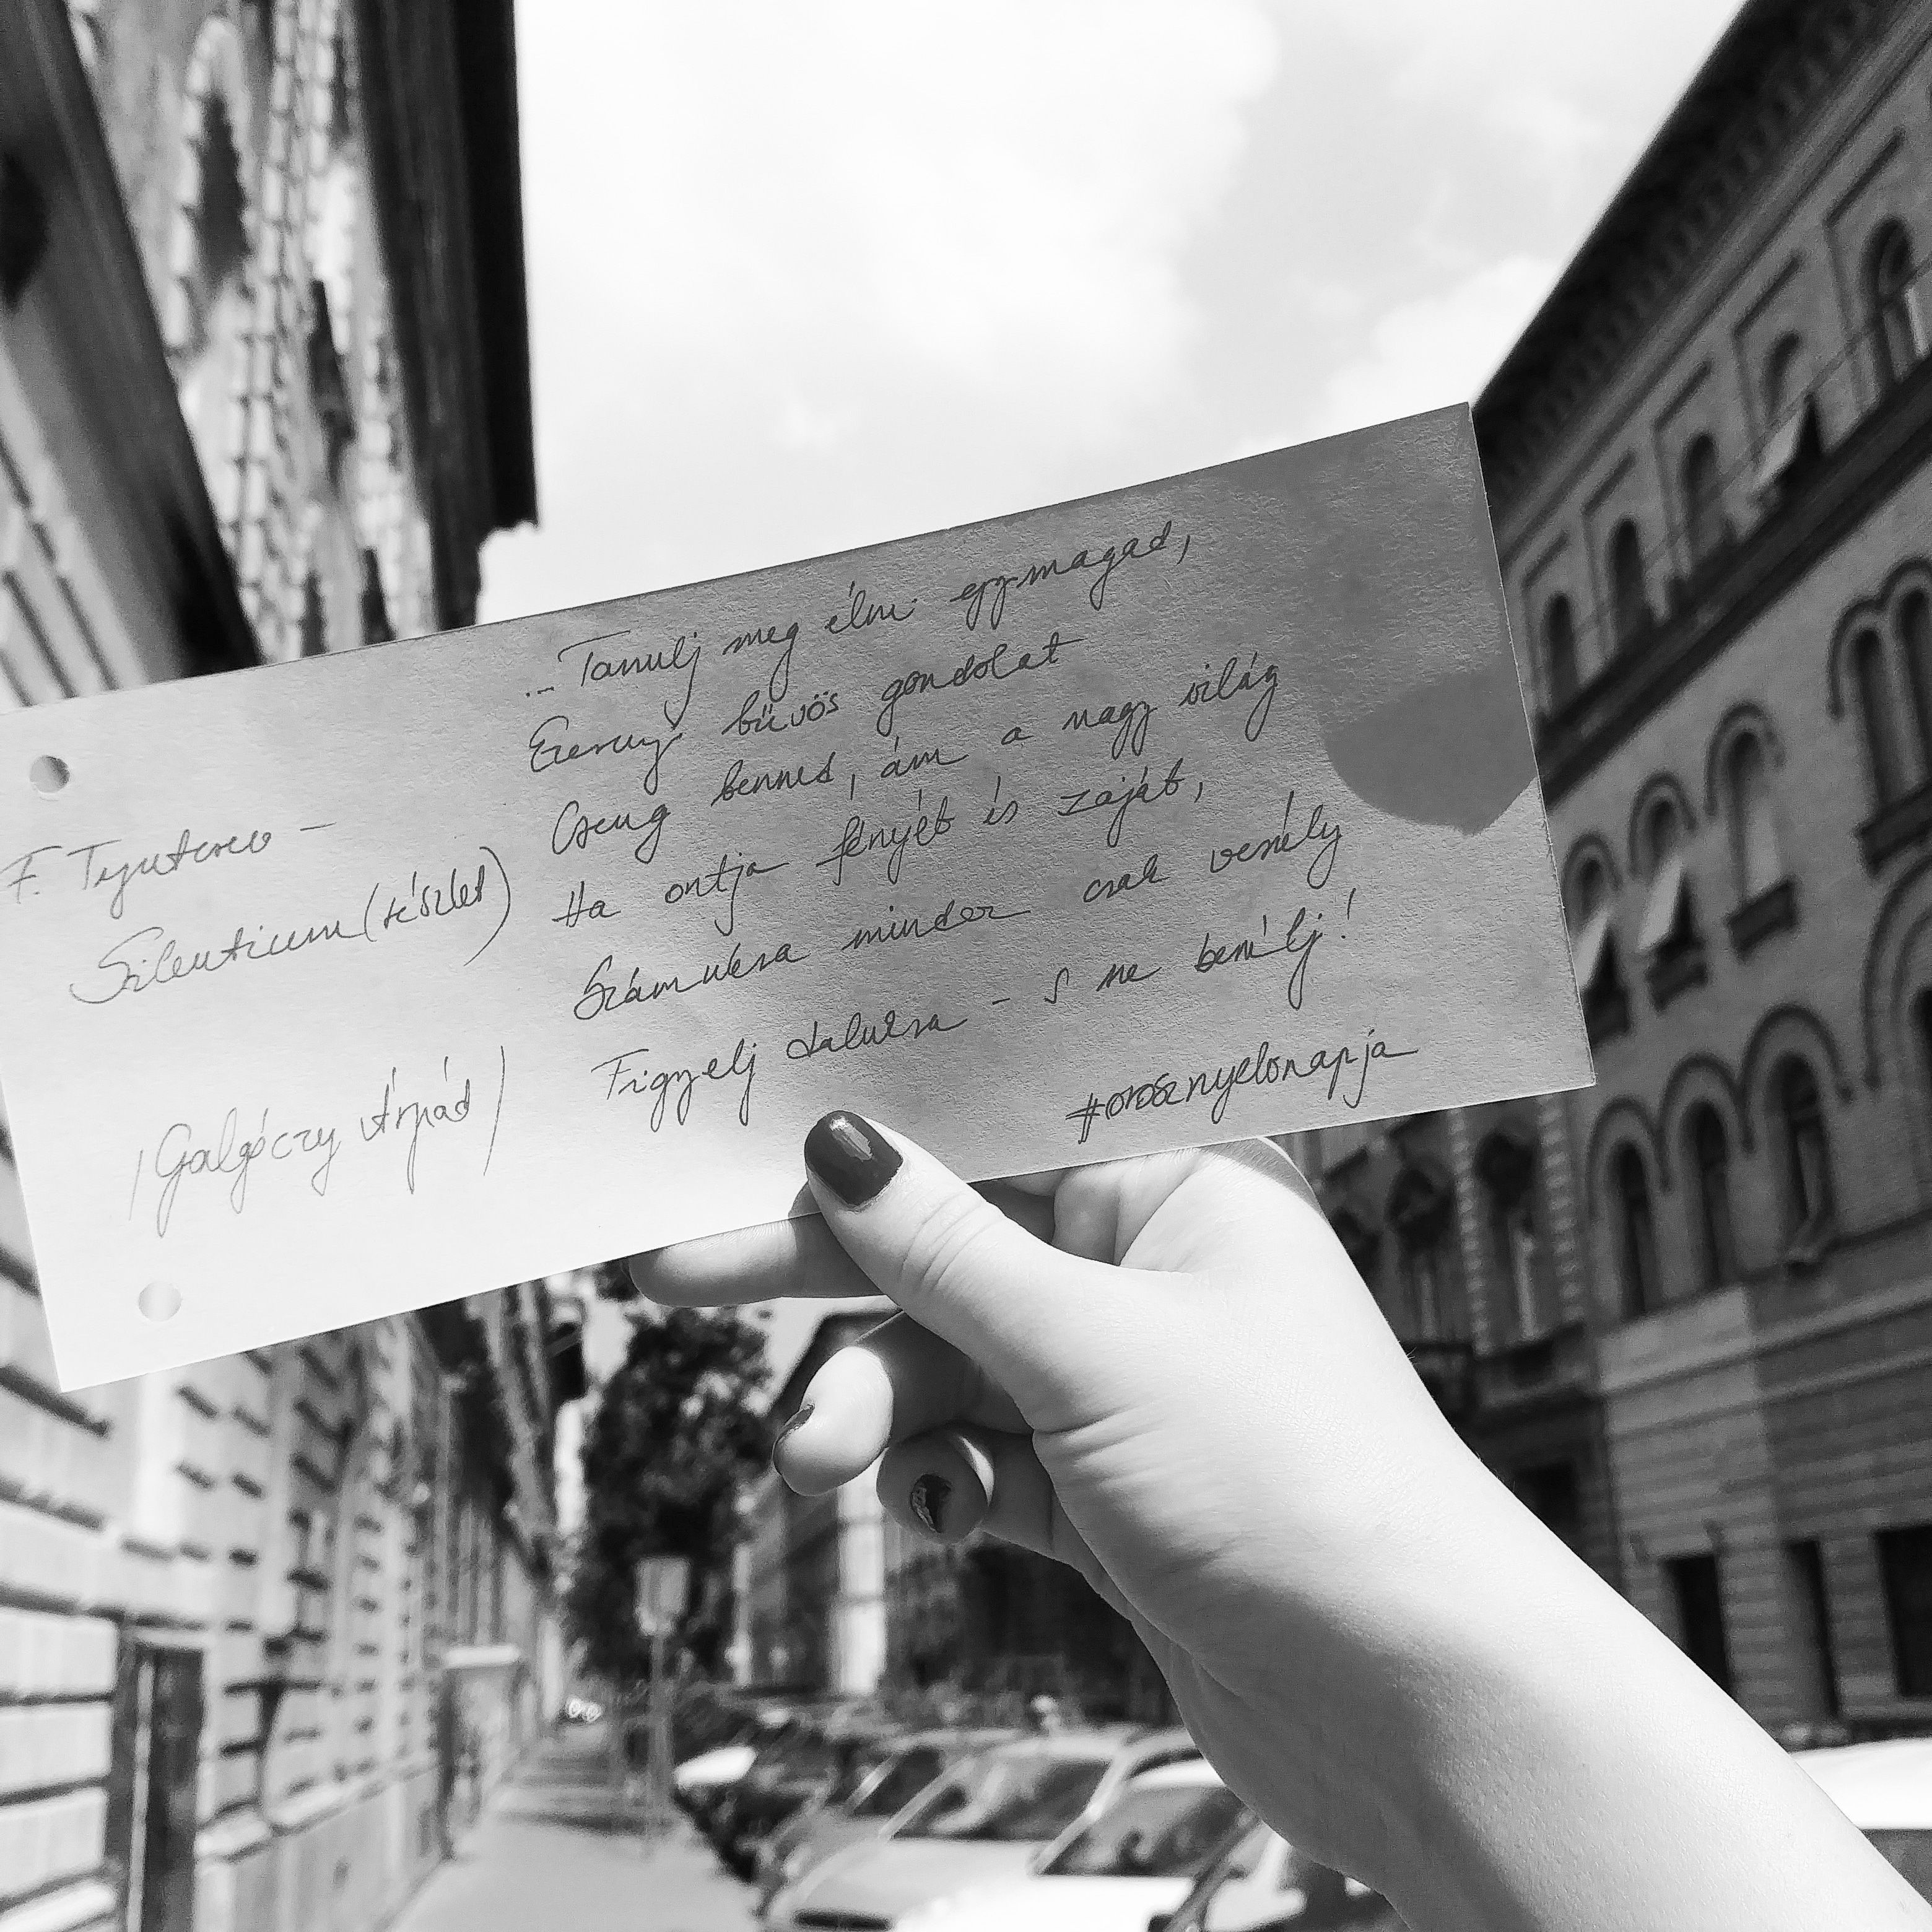 ...Tanulj meg élni egymagad,
Ezernyi bűvös gondolat
Cseng benned, ám a nagy világ
Ha ontja fényét és zaját,
Számukra mindez csak veszély
Figyelj dalukra - s ne beszélj!
#orosznyelvnapja
F. Tyutcsev -
Silentium (részlet)
/Galgóczy Árpád/